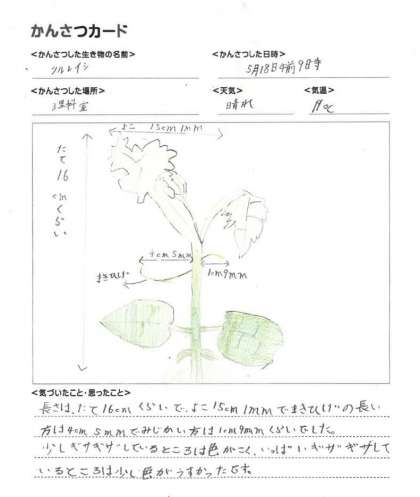 かんさつカード
<かんさつした生き物の名前>
ツルレイシ
<かんさつした日時>
5月18日午前9時
<かんさつした場所>
理科室
<天気>
晴れ
<気温>
℃
よこ 15cm 1mm
たて 16cmくらい
4cm 5mm
1cm9mm
まきひげ
<気づいたこと・思ったこと>
長さは、たて16cmくらいで、よこ15cm1mmでまきひげの長い
方は4cm5mmでみじかい方は1cm9mmくらいでした。
少しギザギザしているところは色がこく、いっぱいギザギザして
いるところは少し色がうすかったです。